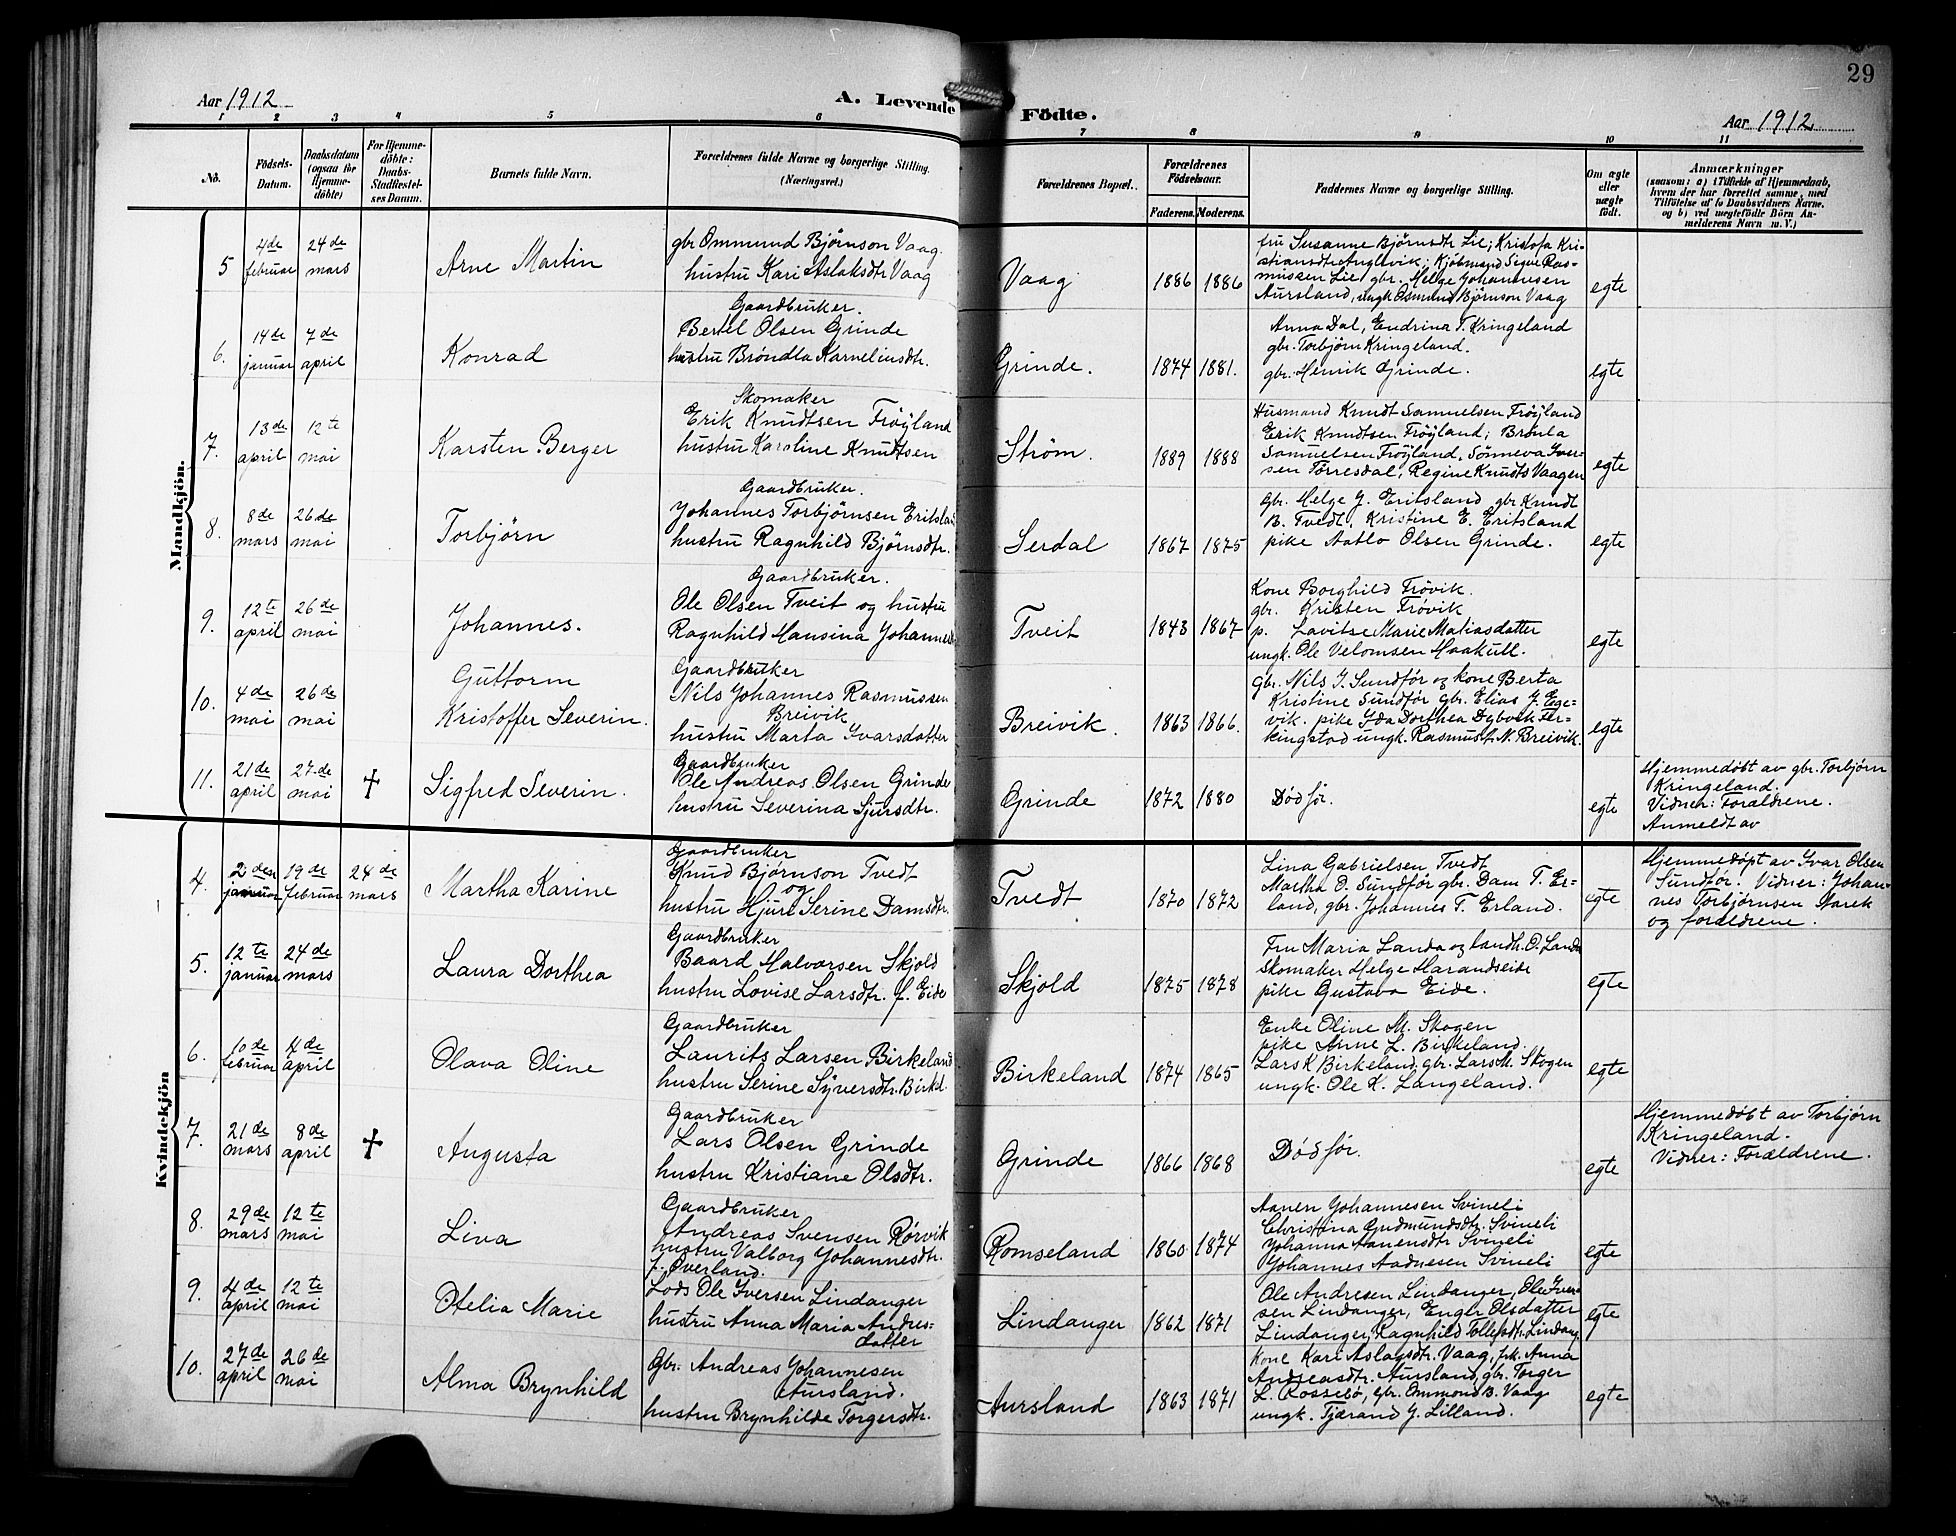 29
Aar 1912
A. Levende Födte.
Aar 1912
1 2 3 4 5 6 7 8 9 10 11
No.
Födsels-Datum.
Daabsdatum (ogsaa for Hjemme-döbte)
For Hjemme-döbte: Daabs-Stadfæstel-ses Datum.
Barnets fulde Navn.
Forældrenes fulde Navne og borgerlige Stilling. (Næringsvei.)
Forældrenes Bopæl.
Forældrenes Födselsaar.
Faderens. Moderens.
Faddernes Navne og borgerlige Stilling.
Om ægte eller uægte födt.
Anmærkninger
(saasom: a) i Tilfælde af Hjemmedaab,
hvem der har forrettet samme, med
Tilföielse af to Daabsvidners Navne,
og b) ved uægtefödte Börn An-
melderens Navn m. V.)
Mandkjön.
5
4de februar
24de mars
Arne Martin
gbr Ommund Bjørnson Vaag.
hustru Kari Aslaksdtr Vaag
Vaag
1886 1886
fru Susanne Bjørnsdtr Lie; Kristofa Kri-
stiansdtr Anglevik; Kjøbmand Sigve Ras-
mussen Lie, gbr. Helge Johannesen
Aursland, ungk Osmund Bjørnson Vaag
egte
6.
14de januar
7de april
Konrad
Gaardbruker.
Bertel Olsen Grinde
hustru Brøndla Karneliusdtr.
Grinde.
1874 1881.
Anna Dal, Endrina T. Kringeland
gbr. Torbjørn Kringeland.
gbr. Henrik Grinde.
egte
7.
13de april
12te mai
Karsten Berger
Skomaker
Erik Knudtsen Frøyland
hustru Karoline Knudtsen
Strøm.
1889 1888
Husmand Knudt Samuelsen Frøyland
Erik Knudtsen Frøyland; Brønla
Samuelsen Frøyland, Sønneva Iver-
sen Tørresdal, Regine Knudts Vaagen
egte
8.
8de mars
26de mai
Torbjørn
Gaardbruker.
Johannes Torbjørnsen Eritsland
hustru Ragnhild Bjørnsdtr.
Serdal
1867 1875
Gbr. Helge J. Eritsland gbr Knudt
B. Tvedt, Kristine E. Eritsland
pike Aatlo Olsen Grinde.
egte
9.
12te april
26de mai
Johannes.
Gaardbruker.
Ole Olsen Tveit og hustru
Ragnhild Hansina Johannes
Tveit
1843 1867
Kone Borghild Frøvik.
gbr. Kristen Frøvik
p. Lavitse Marie Matiasdatter
ungk. Ole Velomsen Haakull.
egte
10.
4de mai
26de mai
Guttorm
Kristoffer Severin.
Gaardbruker
Nils Johannes Rasmussen
Breivik
hustru Marta Ivarsdatter
Breivik.
1863 1866.
Gbr. Nils J. Sundfør og kone Berta
Kristine Sundfør gbr. Elias J. Ege-
vik. pike Ida Dorthea Dybvik Fer-
kingstad ungk. Rasmus N. Breivik.
egte
11.
21de april
27de mai
✝
Sigfred Severin.
Gaardbruker
Ole Andreas Olsen Grinde
hustru Severina Sjursdtr.
Grinde
1872 1880
Død før.
egte
Hjemmedøbt av gbr. Torbjørn
Kringeland.
Vidner: Forældrene.
Anmeldt av
Kvindekjön
4.
2den januar
19de februar
24de mars
Martha Karine
Gaardbruker
Knud Bjørnson Tvedt
og
hustru Hjuri Serine Damsdtr.
Tvedt
1870 1872
Lina Gabrielsen Tvedt
Martha O. Sundfør gbr. Dam T. Er-
land, gbr. Johannes T. Erland.
egte
Hjemmedøpt av Ivar Olsen
Sundfør. Vidner: Johan-
nes Torbjørnsen Aarek
og forældrene.
5.
12te januar
24de mars
Laura Dorthea
Gaardbruker
Baard Halvorsen Skjold
hustru Lovise Larsdtr. f. Eide
Skjold
1875 1878
Fru Maria Landa og landh. O. Landa
Skomaker Helge Harandseide
pike Gustava Eide.
egte
6.
10de februar
4de april
Olava Oline
Gaardbruker
Laurits Larsen Birkeland
hustru Serine Syversdtr. Birkd
Birkeland
1874 1865
Enke Oline M. Skogen
pike Anne L. Birkeland.
Lars K Birkeland, gbr. Lars M. Skogen
ungk. Ole K. Langeland.
egte
7.
21de mars
8de april
✝
Augusta
Gaardbruker
Lars Olsen Grinde
hustru Kristiane Olsdtr.
Grinde
1866 1868
Død før.
egte
Hjemmedøbt av Torbjørn
Kringeland.
Vidner: Forældrene.
8.
29de mars
12te mai
Liva
Gaardbruker
Andreas Svensen Rørvik
hustru Valborg Johannesdtr.
f. Øverland.
Romseland
1860 1874
Aanen Johannesen Svineli
Christina Gudmundsdtr. Svineli
Johanna Aanensdtr Svineli
Johannes Aadnesen Svineli
egte
9.
4de april
12te mai
Otelia Marie
Lods Ole Iversen Lindanger
hustru Anna Maria Andreas-
datter
Lindanger
1862 1871
Ole Andresen Lindanger, Ole Iver-
sen Lindanger, Engler Olsdatter
Lindanger, Ragnhild Tollefsdtr. Lindang.
egte
10.
27de april
26de mai
Alma Brynhild
Gbr. Andreas Johannesen
Aursland.
hustru Brynhilde Torgersdtr.
Aursland
1863 1871
Kone Kari Aslagsdtr. Vaag, pk. Anna
Andreasdtr. Aursland, gbr. Torger
L. Rossebø, gbr. Ommond B. Vaag
ungk. Tjærand J. Lilland.
egte